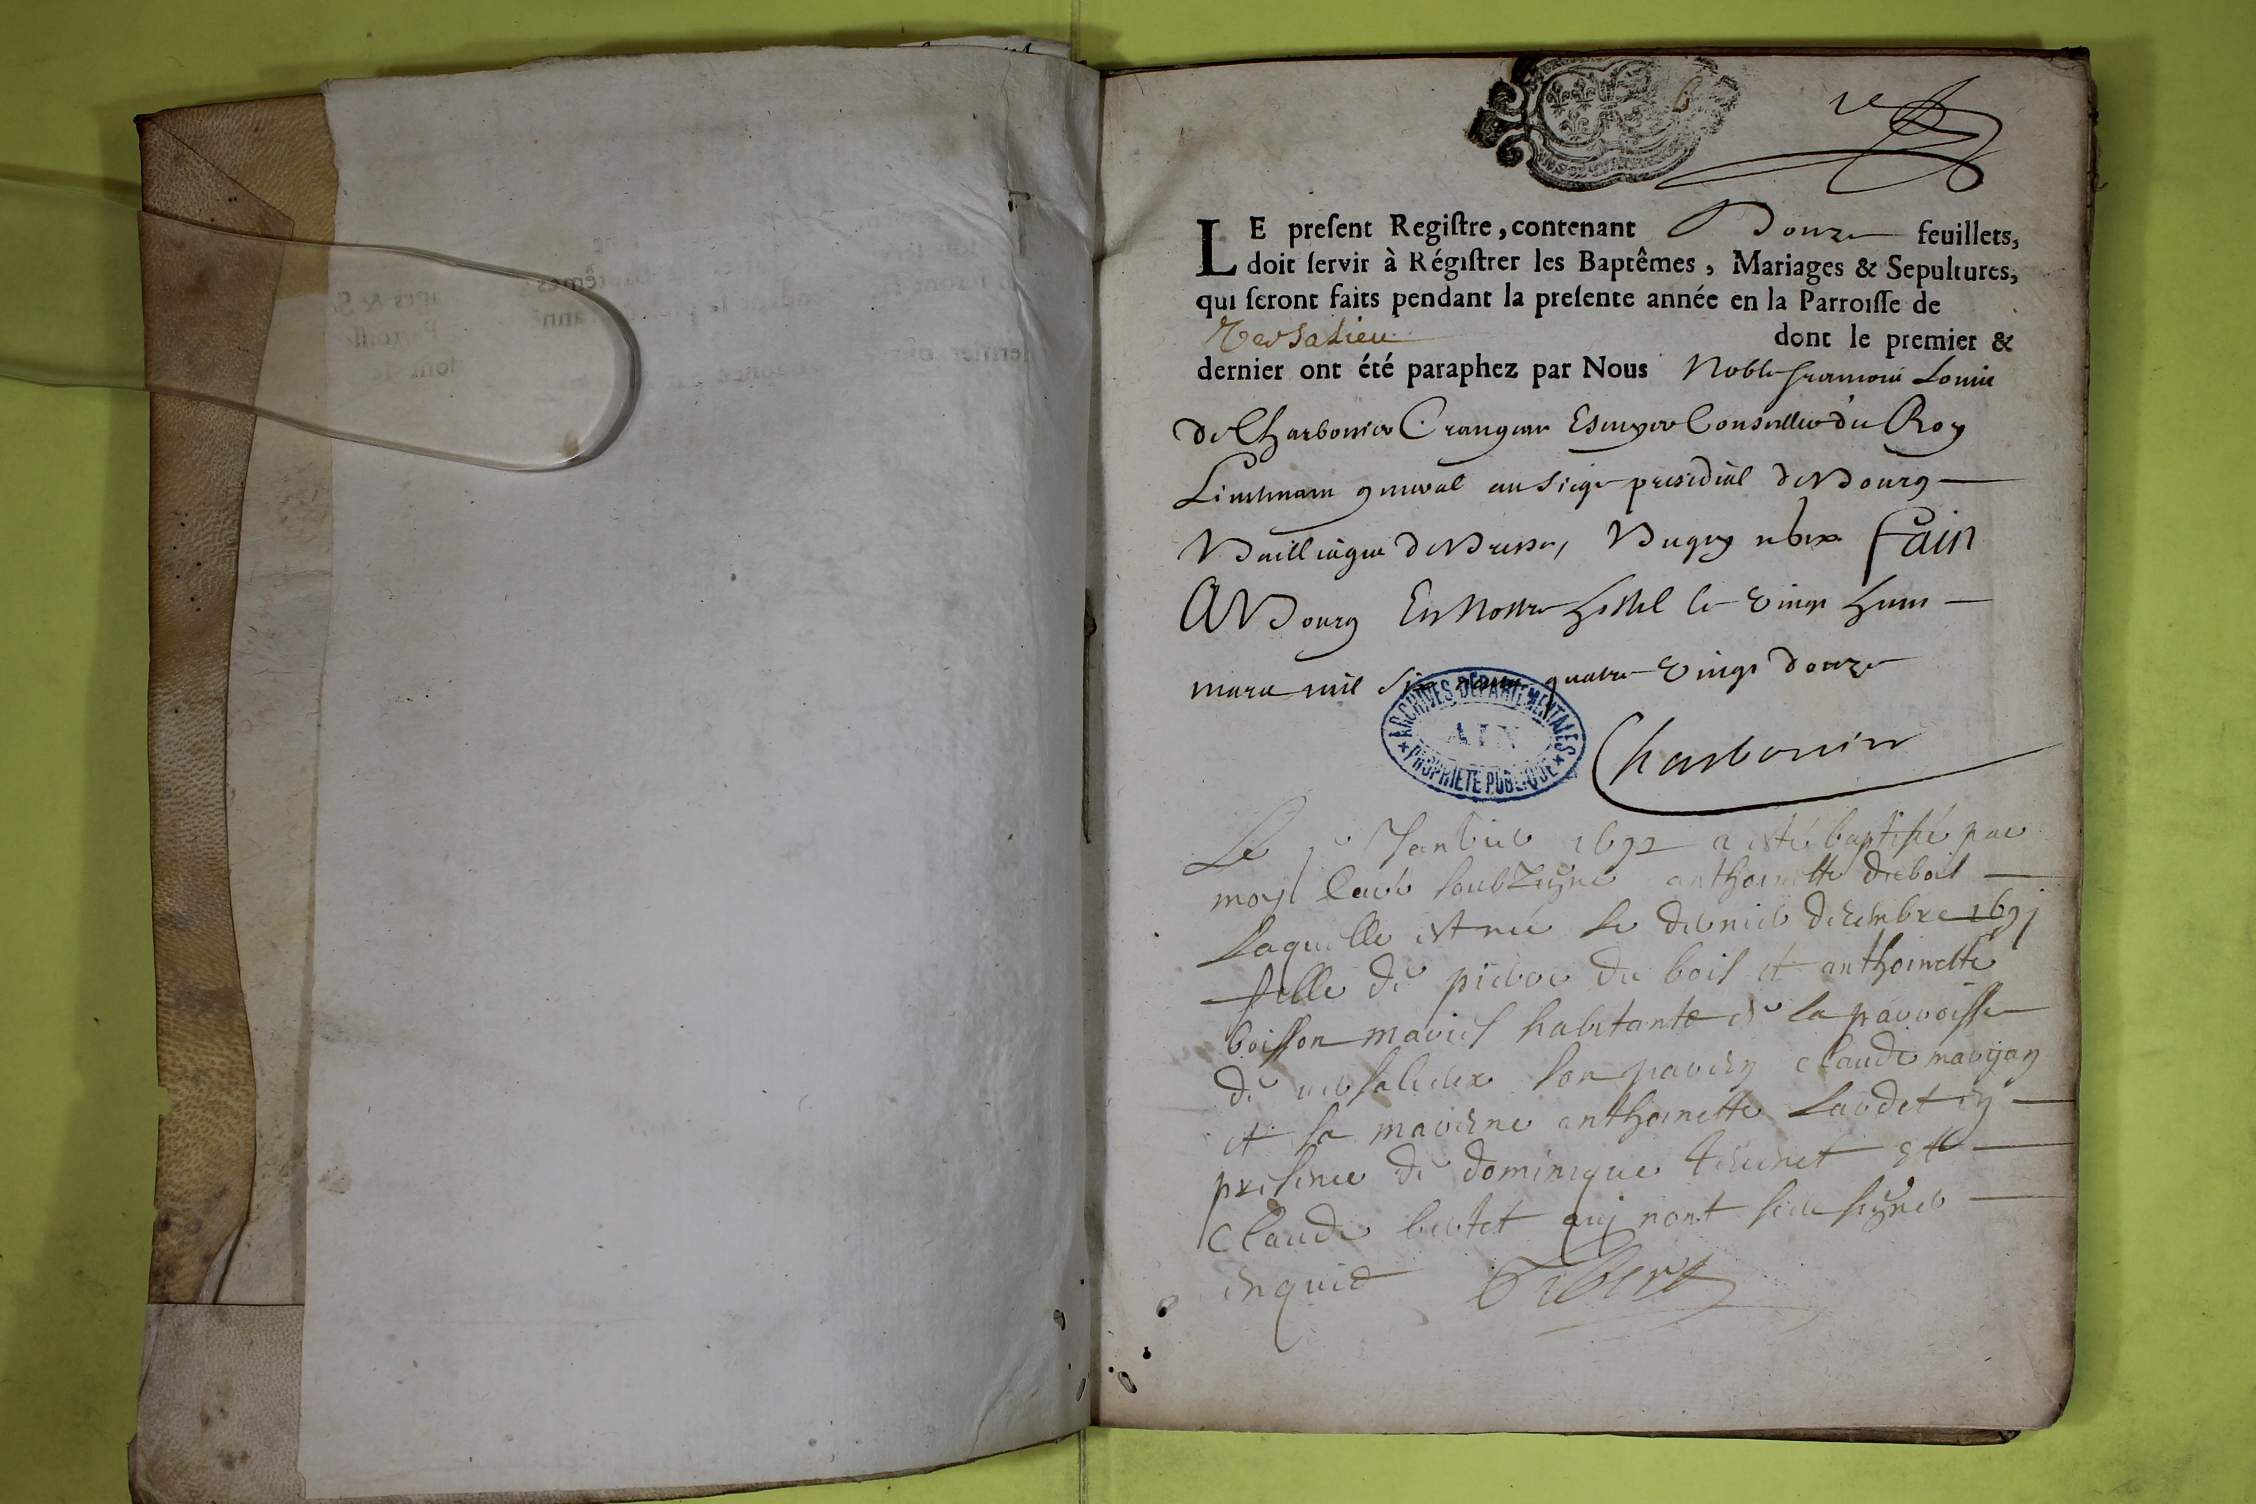 LE preſent Regiſtre, contenant Douze feuillets,
doit ſervir à Régiſtrer les Baptêmes, Mariages & Sepultures,
qui ſeront faits pendant la preſente année en la Parroiſſe de
Versalieu dont le premier &
dernier ont été paraphez par Nous Noble françois Louis
De Charbonier Crangeac Escuyer Conseiller du Roy
Lieutenant general au siege presidial de Bourg
Bailliage de Bresse, Bugey Fait
A Bourg En Nostre hostel le vingt huit
mars mil six cents quatre vingt douze
ARCHIVES DEPARTEMENTALES
AIN
PROPRIETE PUBLIQUE
Charbonier
Le Janvier 1692 a esté baptisé par
moy Curé soubzigné anthoinette dubois
laquelle est née le dernier dezembre 1691
fille de pierre du bois et anthoinette
boisson mariés habitants de la parroisse
de versalieux son parein claude
et sa mareine anthoinette en
presence de dominique et
Claude bertet qui nont sceu signer
enquis